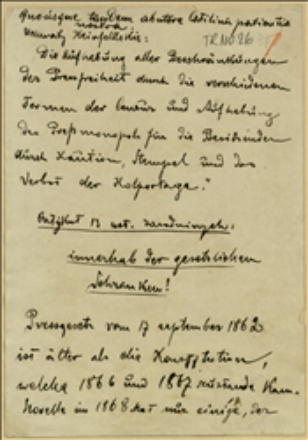 Quousque tandem abutere Catilina patientia
nostra
TRNO 26
Die Aufhebung aller Beschränkungen
der Pressfreiheit durch die verschiedenen
Formen der Censur und Aufhebung
des Preßmonopols für die Besitzenden
durch Kaution, Stempel und das
Verbot der Kolportage."
Artikel 13 :
innerhalb der gesetzlichen
Schranken!
Pressgesetz vom 17 september 1862
ist älter als die
welche 1866 und 1867
Novelle in 1868 hat nur einige, der